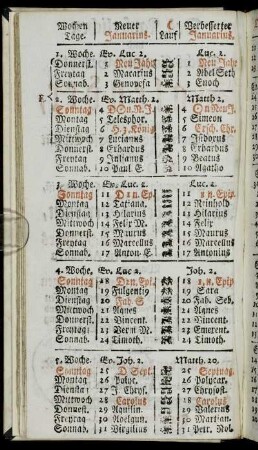 Wochen Neuer Verbesserter
Tage. Januarius. Lauf Januarius.
1. Woche. Ev. Luc. 2. Luc. 2.
Donnerst. 1 Neu Jahr 1 Neu Jahr
Freytag 2 Macarius 2 Abel Seth
Sonnab. 3 Genovefa 3 Enoch
2. Woche. Ev. Matth. 2. Matth. 2.
Sonntag 4
Montag 5 Telesphor. 5 Simeon
Dienstag 6 H. 3 König 6 Ersch. Chr.
Mittwoch 7 Lucianus 7 Isidorus
Donnerst. 8 Erhardus 8 Erhardus
Freytag 9 Julianus 9 Beatus
Sonnab. 10 Paul E. 10 Agatho
3. Woche. Ev. Luc. 2. Luc. 2.
Sonntag 11 D 1 n. Ep. 11 1 n. Epip.
Montag 12 12 Reinhold
Dienstag 13 Hilarius 13 Hilarius
Mittwoch 14 Felix M. 14 Felix
Donnerst. 15 Maurus 15 Maurus
Freytag 16 Marcellus 16 Marcellus
Sonnab. 17 Anton. E. 17 Antonius
4. Woche. Ev. Luc. 2. Joh. 2.
Sonntag 18 D 2 n. Epi. 18 2. n. Epip
Montag 19 Fulgentio 19 Sara
Dienstag 20 Fab. S. 20 Fab. Seb.
Mittwoch 21 Agnes 21 Agnes
Donnerst. 22 Vincent. 22 Vincent.
Freytag 23 23 Emerent.
Sonnab. 24 Timoth. 24 Timoth.
5. Woche. Ev. Joh. 2. Matth. 20.
Sonntag 25 D Sept. 25 Septuag.
Montag 26 Polyc. 26 Polycar.
Dienstag 27 J. Chrys. 27 Chrysost.
Mittwoch 28 Carolus 28 Carolus
Donnerst. 29 Aquilin. 29 Valerius
Freytag 30 30 Martian.
Sonnab. 31 Virgilius 31 Petr. Nol.